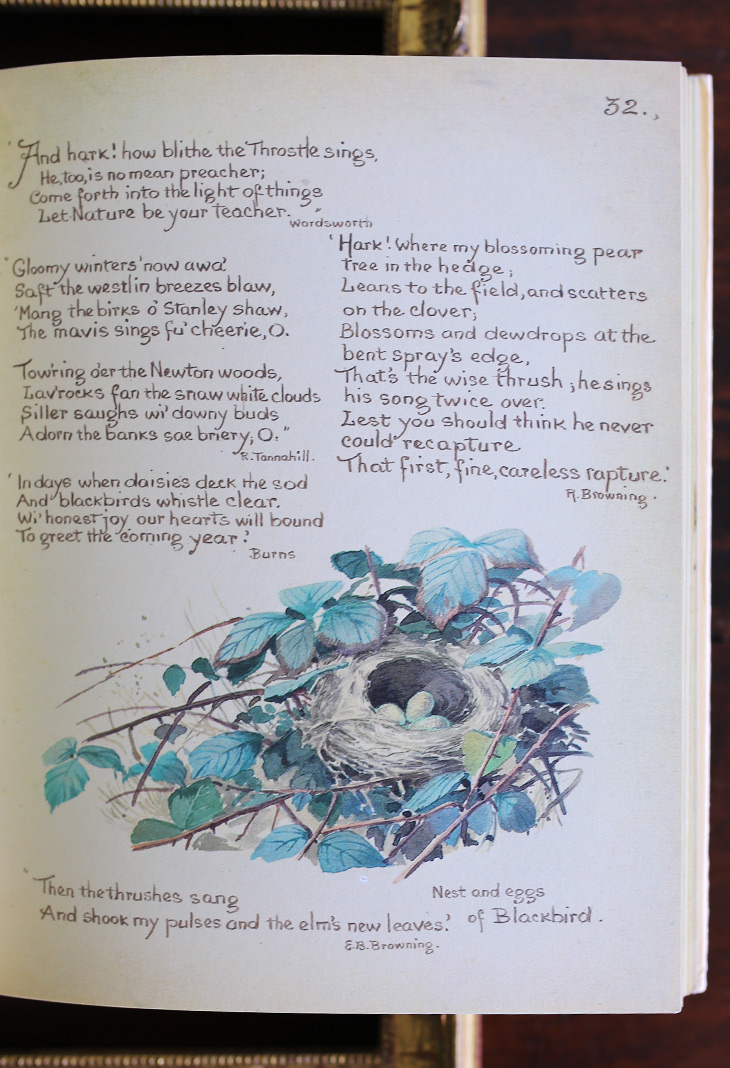 32.,
'And hark! how blithe the Throstle sings,
He, too, is no mean preacher;
Come forth into the light of things
Let Nature be your teacher."
Wordsworth
'Gloomy winters' now awa'
Saft the westlin breezes blaw,
'Mang the birks o' Stanley shaw,
The mavis sings fu' cheerie, O.
Tow'ring o'er the Newton woods,
Lav'rocks fan the snaw white clouds
Siller saughs wi' downy buds
Adorn the banks sae briery, O."
R. Tannahill.
'In days when daisies deck the sod
And blackbirds whistle clear.
Wi' honest joy our hearts will bound
To greet the coming year.'
Burns
'Hark! Where my blossoming pear
tree in the hedge,
Leans to the field, and scatters
on the clover;
Blossoms and dewdrops at the
bent spray's edge,
That's the wise thrush; he sings
his song twice over.
Lest you should think he never
could recapture
That first, fine, careless rapture.'
R. Browning.
'Then the thrushes sang
And shook my pulses and the elm's new leaves.'
E.B. Browning.
Nest and eggs
of Blackbird.